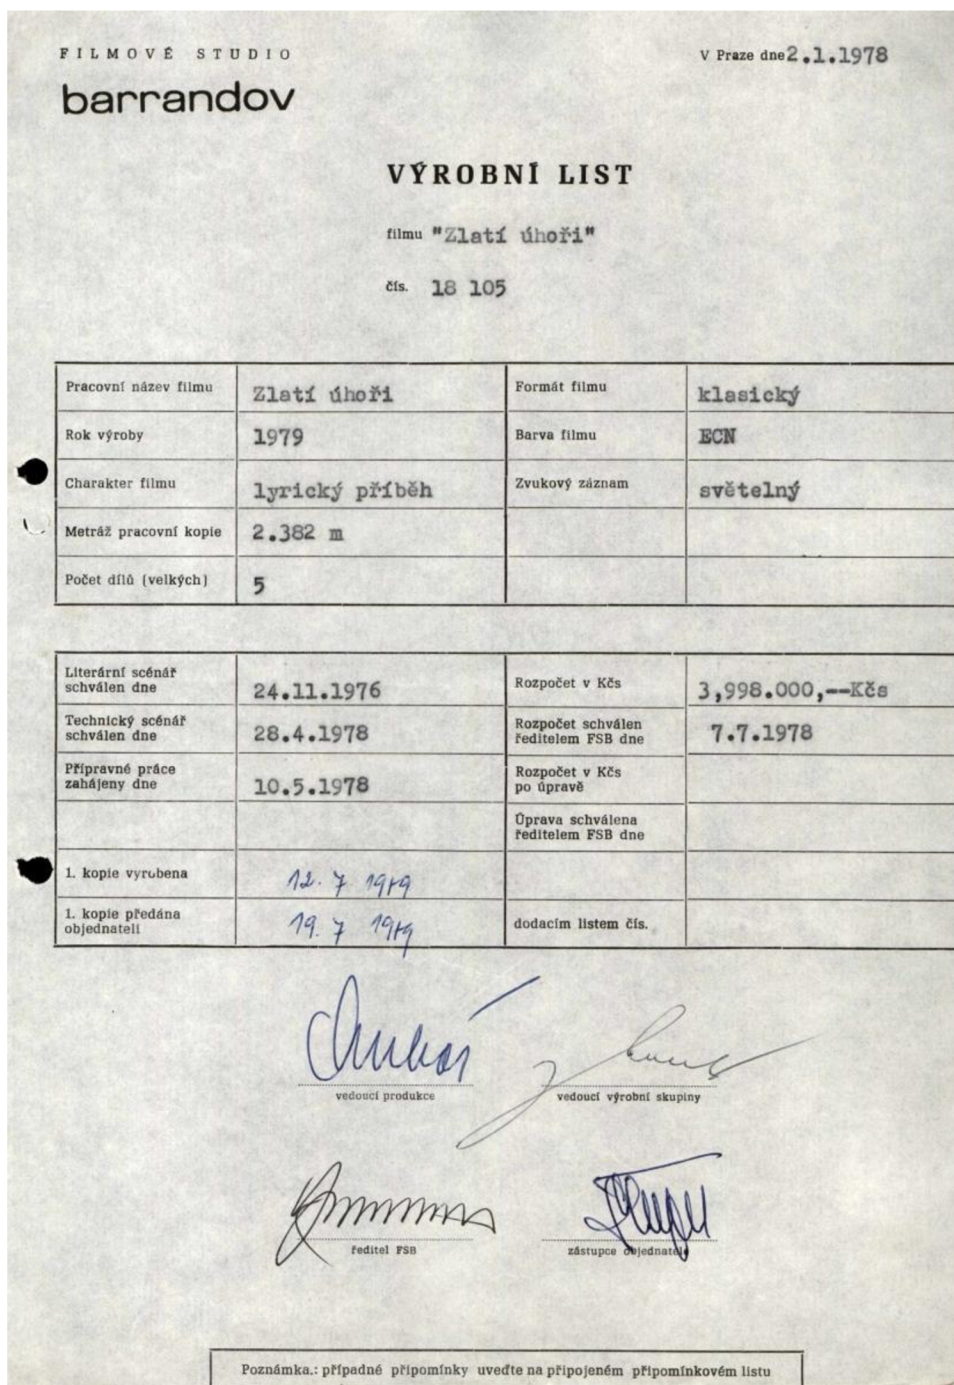 FILMOVÉ STUDIO
V Praze dne 2.1.1978
barrandov
VÝROBNÍ LIST
filmu "Zlatí úhoři"
čís. 18 105
Pracovní název filmu Zlatí úhoři Formát filmu klasický
Rok výroby 1979 Barva filmu ECN
Charakter filmu lyrický příběh Zvukový záznam světelný
Metráž pracovní kopie 2.382 m
Počet dílů (velkých) 5
Literární scénář
schválen dne 24.11.1976 Rozpočet v Kčs 3,998.000,--Kčs
Technický scénář
schválen dne 28.4.1978 Rozpočet schválen
ředitelem FSB dne 7.7.1978
Přípravné práce
zahájeny dne 10.5.1978 Rozpočet v Kčs
po úpravě
Úprava schválena
ředitelem FSB dne
1. kopie vyrobena 12. 7 1979
1. kopie předána
objednateli 19. 7 1979 dodacím listem čís.
vedoucí produkce vedoucí výrobní skupiny
ředitel FSB zástupce objednatele
Poznámka.: případné připomínky uveďte na připojeném připomínkovém listu